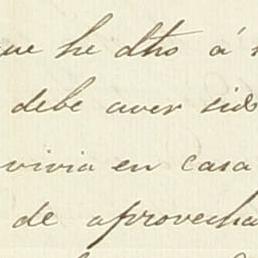 que he dho á
debe aver sido
vivia en casa
de aprovecha